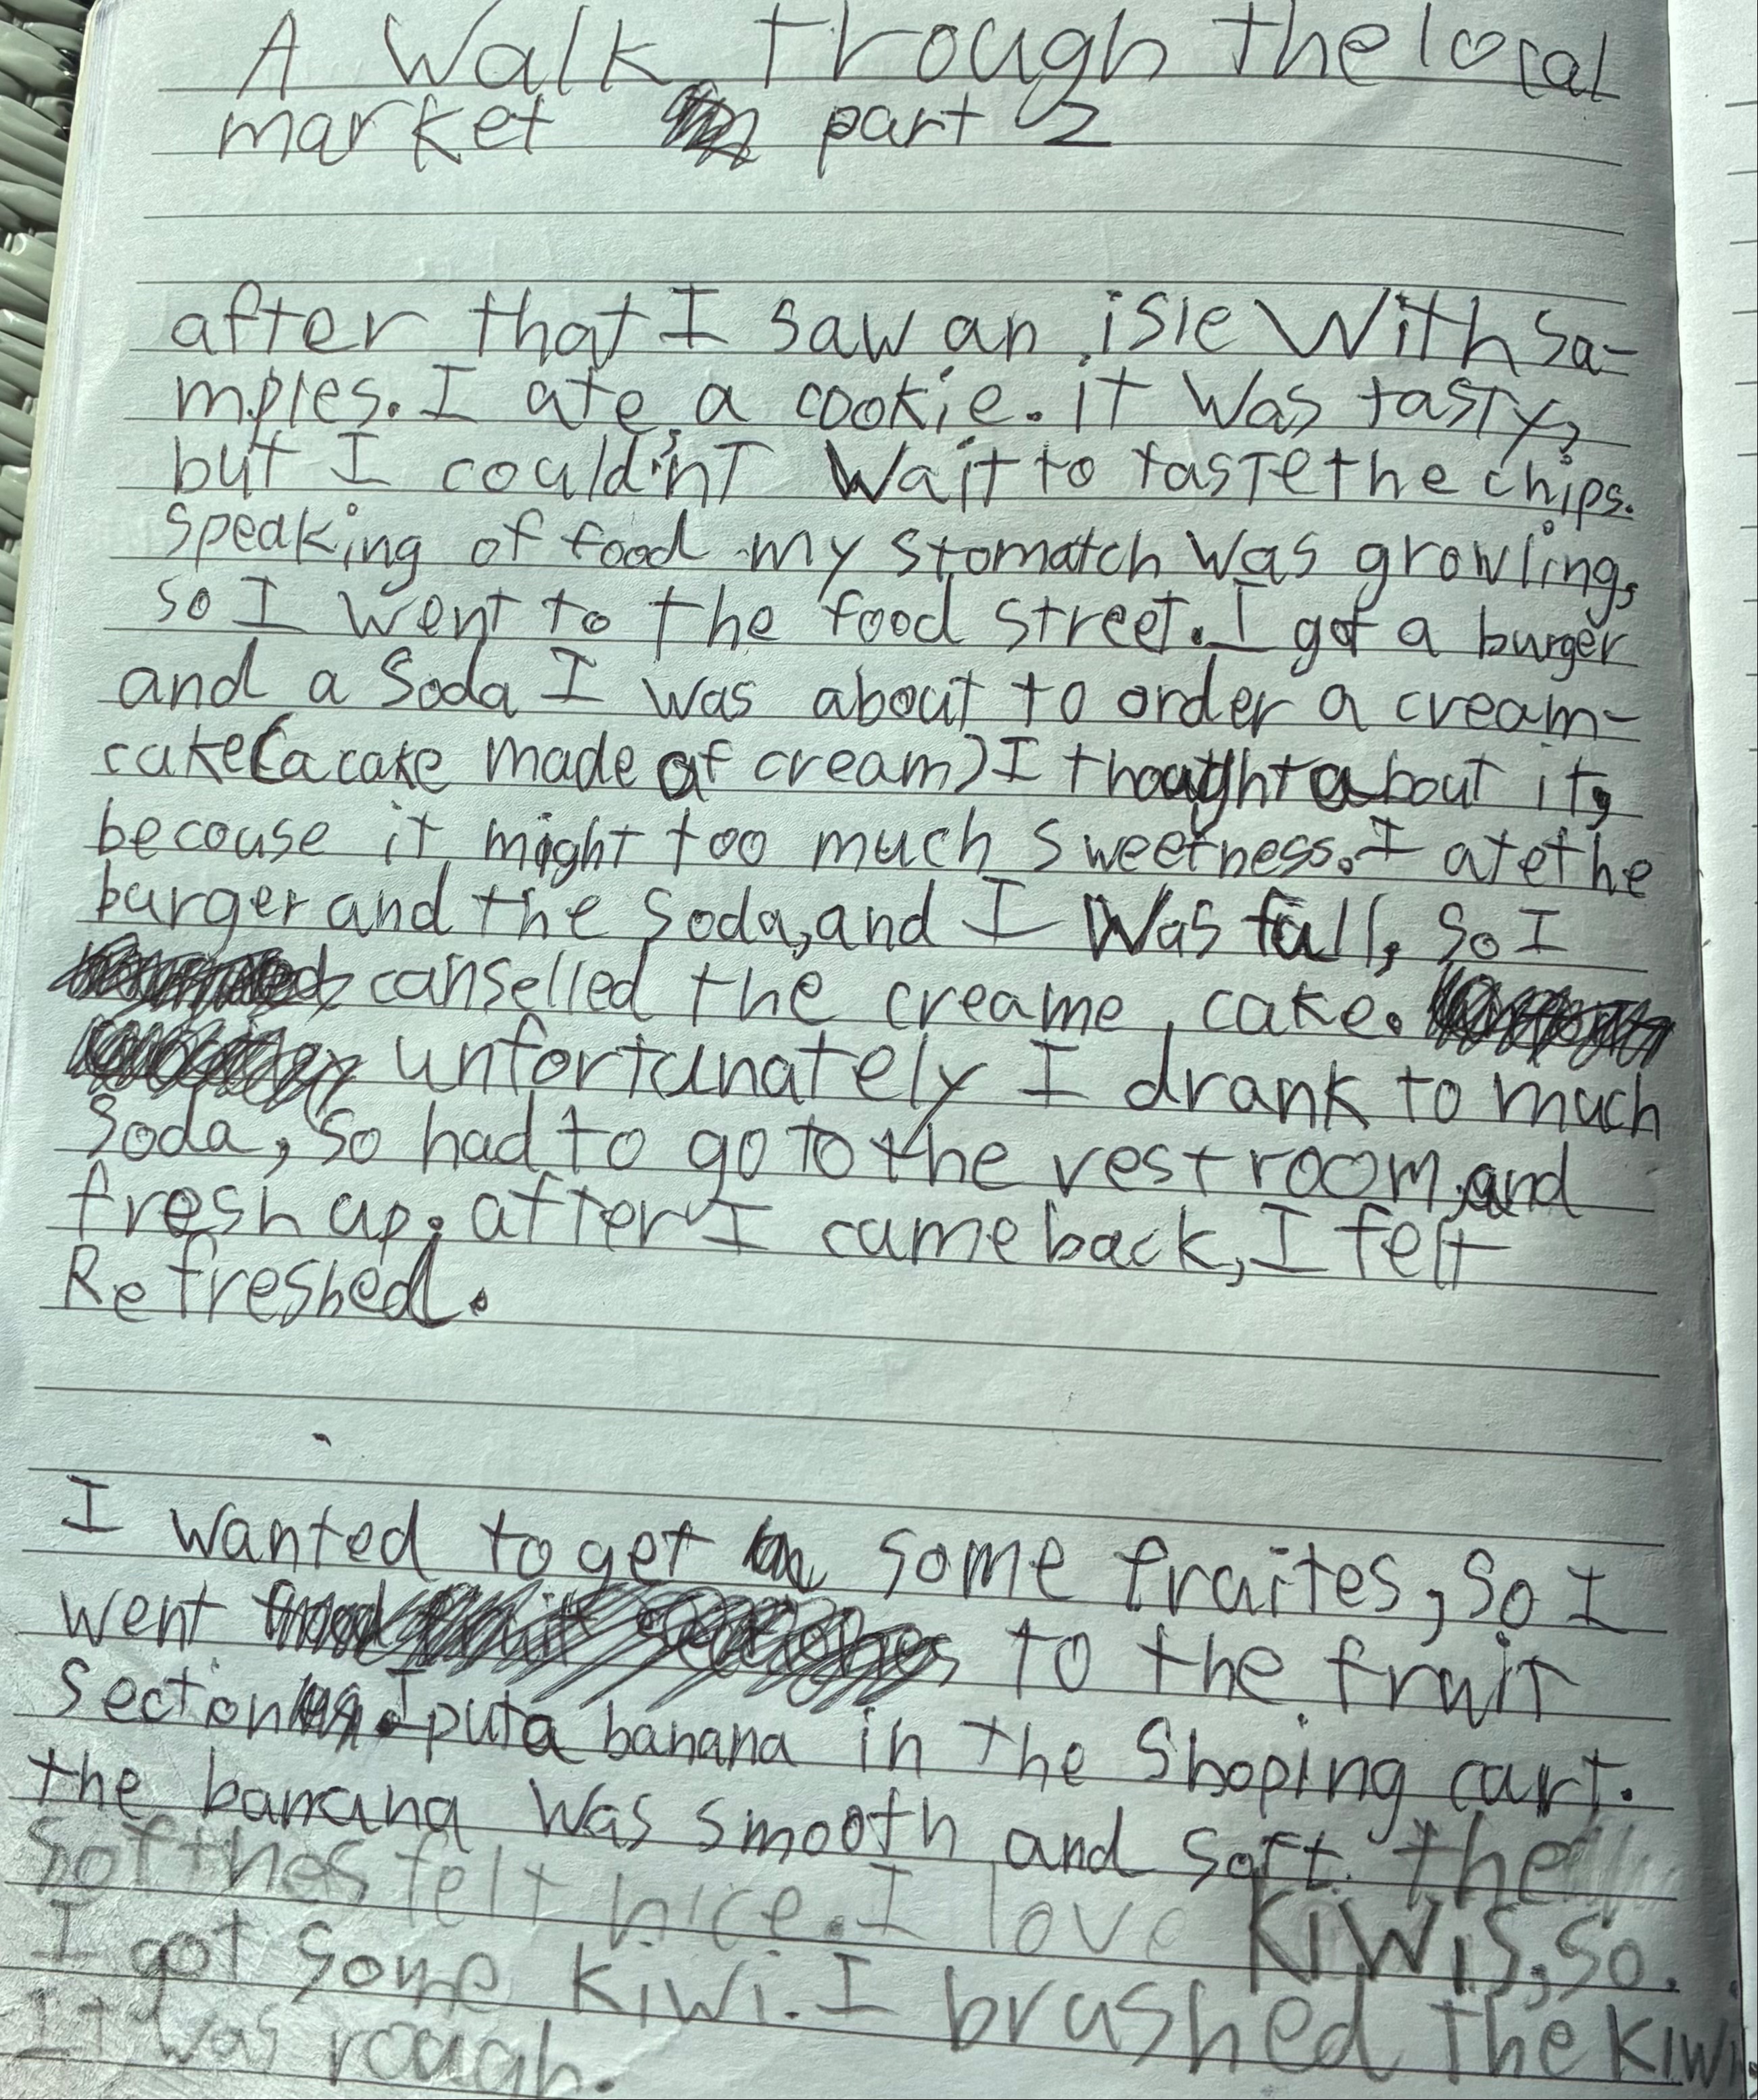 A Walk Trough the local
market part 2
after that I saw an isle With sa-
mples. I ate a cookie. it Was tasty,
but I could'nt Wait to taste the chips.
speaking of food my stomatch was growling,
so I went to the food street. I got a burger
and a Soda I was about to order a cream-
cake(a cake made of cream) I thought about it,
becouse it might too much sweetness. I ate the
burger and the soda, and I Was full, so I
canselled the creame cake.
unfortunately I drank to much
Soda, so had to go to the restroom, and
fresh up. after I came back, I felt
Refreshed.
I wanted to get some fruites, so I
went to the fruit
section. I put a banana in the Shoping cart.
the banana Was smooth and soft. the
softhes felt nice. I love kiwis, so
I got some kiwi. I brushed the kiwi.
It was rough.